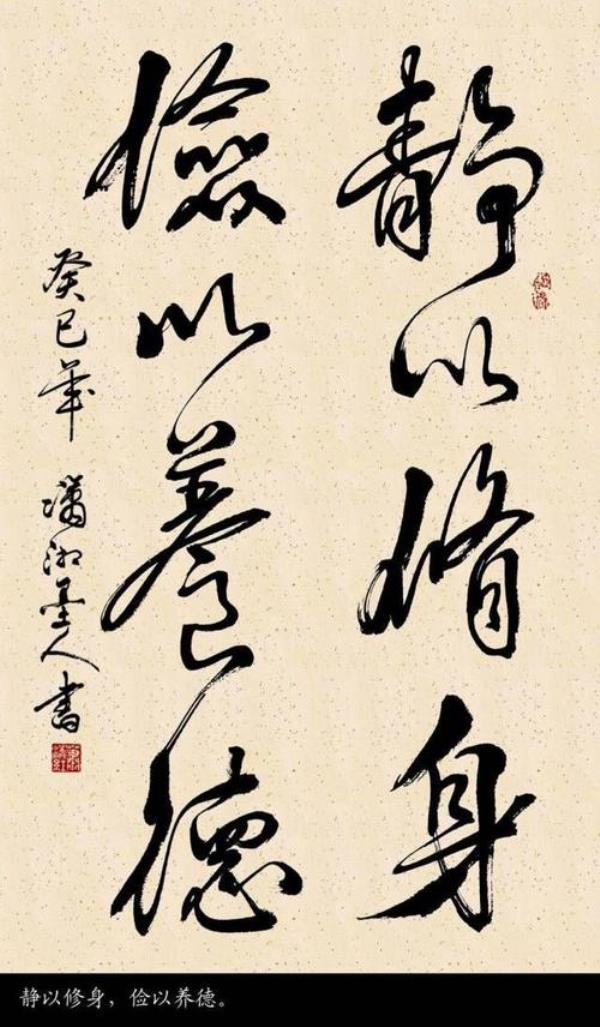 靜以脩身
儉以養德
癸巳年 瀟湘墨人書
静以修身，俭以养德。